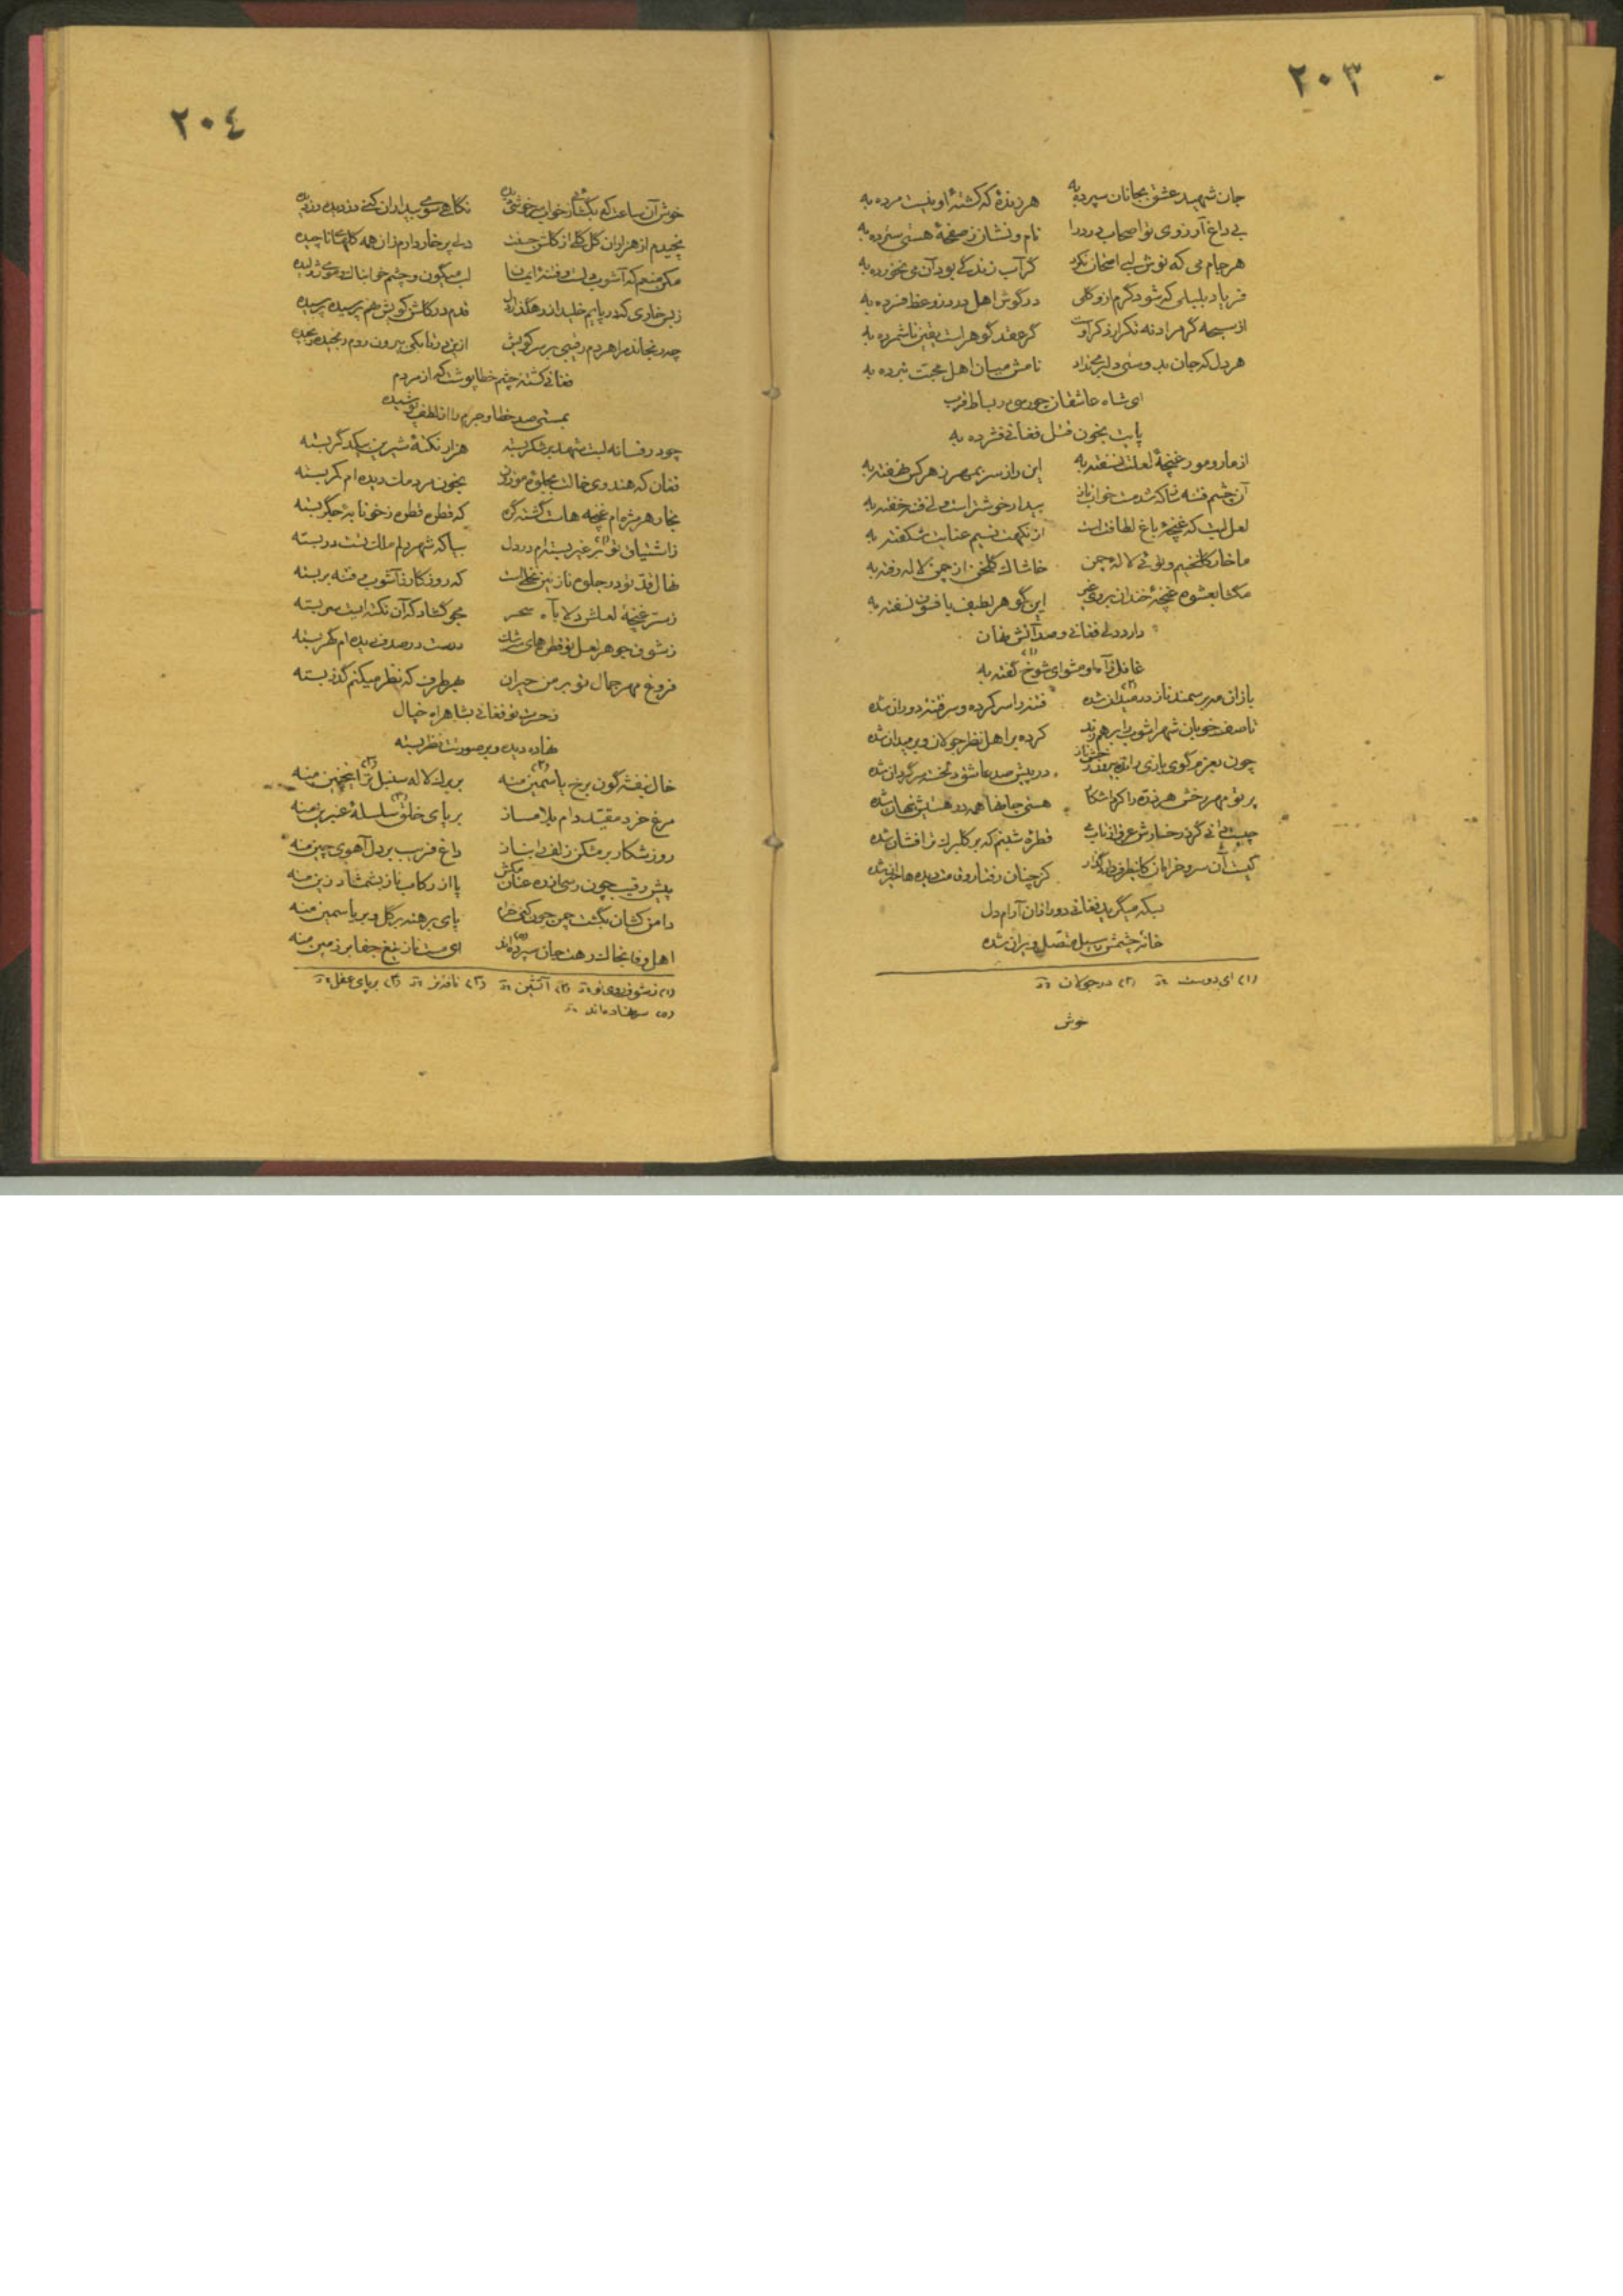 ٢٠٣
جان شهید عشق بجانان سپرده به هر زندهٔ که کشتهٔ او نیست مرده به
بی داغ آرزوی تو اصحاب درد را نام و نشان ز صفحهٔ هستی سترده به
هر جام می که نوش لبی امتحان نکرد گر آب زندگی بود آن می نخورده به
فریاد بلبلی که شود گرم از و گلی در گوش اهل درد ز وعظ فسرده به
از سبحه گر مراد نه تکرار ذکر اوست گر عقد گوهر است یقین ناشمرده به
هر دل که جان بدوستی دلبری نداد نامش میان اهل محبت نبرده به
ای شاه عاشقان چو رسی در بساط قرب
پایت بخون قتل فغانی فشرده به
از مار و مور غنچهٔ لعلت نسفته به این راز سر بمهر ز هر کس نهفته به
آن چشم فتنه که شد مست خواب ناز بیدار خوشتر است ولی فتنه خفته به
لعل لبت که غنچهٔ باغ لطافت است از نکهت نسیم عنایت شکفته به
ما خار گلخنیم و توئی لالهٔ چمن خاشاک گلخنی از چمن لاله رفته به
مگشا بعشوه غنچهٔ خندان بروی غیر این گوهر لطیف بافسون نسفته به
دارد دلی فغانی و صد آتش نهان
غافل ز آه او مشو ای شوخ(١) گفته به
باز آن مه بر سمند ناز در میدان(٢) شده فتنه را سر کرده و سر فتنهٔ دوران شده
تا صف خوبان شهر آشوب را بر هم زند کرده بر اهل نظر جولان و بر میدان شده
چون بعزم گوی بازی رانده بیرون رخش ناز در پیش صد عاشق دلخسته سرگردان شده
پرتو مهر رخش هر ذره را کرد آشکار هستی جانها همه در هستیش پنهان شده
چیست دانی گرد رخسارش عرق از تاب می قطرهٔ شبنم که بر گلبرگ تر افشان شده
کیست آن سرو خرامان کاینطرف دارد گذر کز چنان رفتار و قامت دیده ها حیران شده
بسکه میگرید فغانی دور از آن آرام دل
خانهٔ چشمش ز سیل متصل ویران شده
(١) ای دوست (٢) در جولان
خوش
٢٠٤
خوش آن ساعت که بگشائی ز خواب سرخوشی دیده نگاهی سوی بیداران کنی دزدیده دزدیده
نچیدم از هزاران گل گلی از گلشن حسنت دلی پر خار دارم زان همه گلهای ناچیده
مکن منعم که آشوب دلست و فتنهٔ ایمان لب میگون و چشم خوابناک و موی ژولیده
ز بس خاری که در پایم خلید از رهگذار دل قدم در گلشن کویش نهم پرسیده پرسیده
چه رنجاند مرا هر دم رقیبی بر سر کویش ازین در تا بکی بیرون روم رنجیده رنجیده
فغانی کشتهٔ چشم خطاپوشت که از مردم
بمستی صد خطا و جرم را از لطف پوشیده
چو در فسانه لبت شهد بر شکر بسته هزار نکتهٔ شیرین بیکدگر بسته
فغان که هندوی خالت بجلوهٔ موزون بخون مردمک دیده ام کمر بسته
بخار هر مژه ام غنچه هاست گشته گره که قطره قطره ز خونابهٔ جگر بسته
ز اشتیاق تو(١) بر غیر بسته ام در دل بیا که شهر دلم ملک تست در بسته
نهال قد تو در جلوه ناز نین نخلیست که روزگار ز آشوب و فتنه بر بسته
ز سر غنچهٔ لعلش دلا بآه سحر مجو گشاد که آن نکته ایست سر بسته
ز شوق جوهر لعل تو قطرهای سرشک درست در صدف دیده ام گهر بسته
فروغ مهر جمال تو بر من حیران بهر طرف که نظر میکنم گذر بسته
ز حسرت تو فغانی بشاهراه خیال
نهاده دیده و بر صورتت نظر بسته
خال بنفشه گون برخ یاسمین(٢) منه بر برگ لاله سنبل تر(٣) اینچنین منه
مرغ خرد مقید دام بلا مساز بر پای خلق(٤) سلسلهٔ عنبرین منه
روز شکار بر مشکن زلف را بناز داغ فریب بر دل آهوی چین منه
پیش رقیب چون رسی از ره عنان مکش پا از رکاب ناز بشمشاد زین منه
دامن کشان بگشت چمن چون کنی خرام پای برهنه بر گل و بر یاسمین منه
اهل وفا بخاک رهت جان سپرده اند(٥) ای مست ناز تیغ جفا بر زمین منه
(١) ز شوق روی تو (٢) آتشین (٣) نافه تر (٤) بر پای عقل
(٥) سر نهاده اند